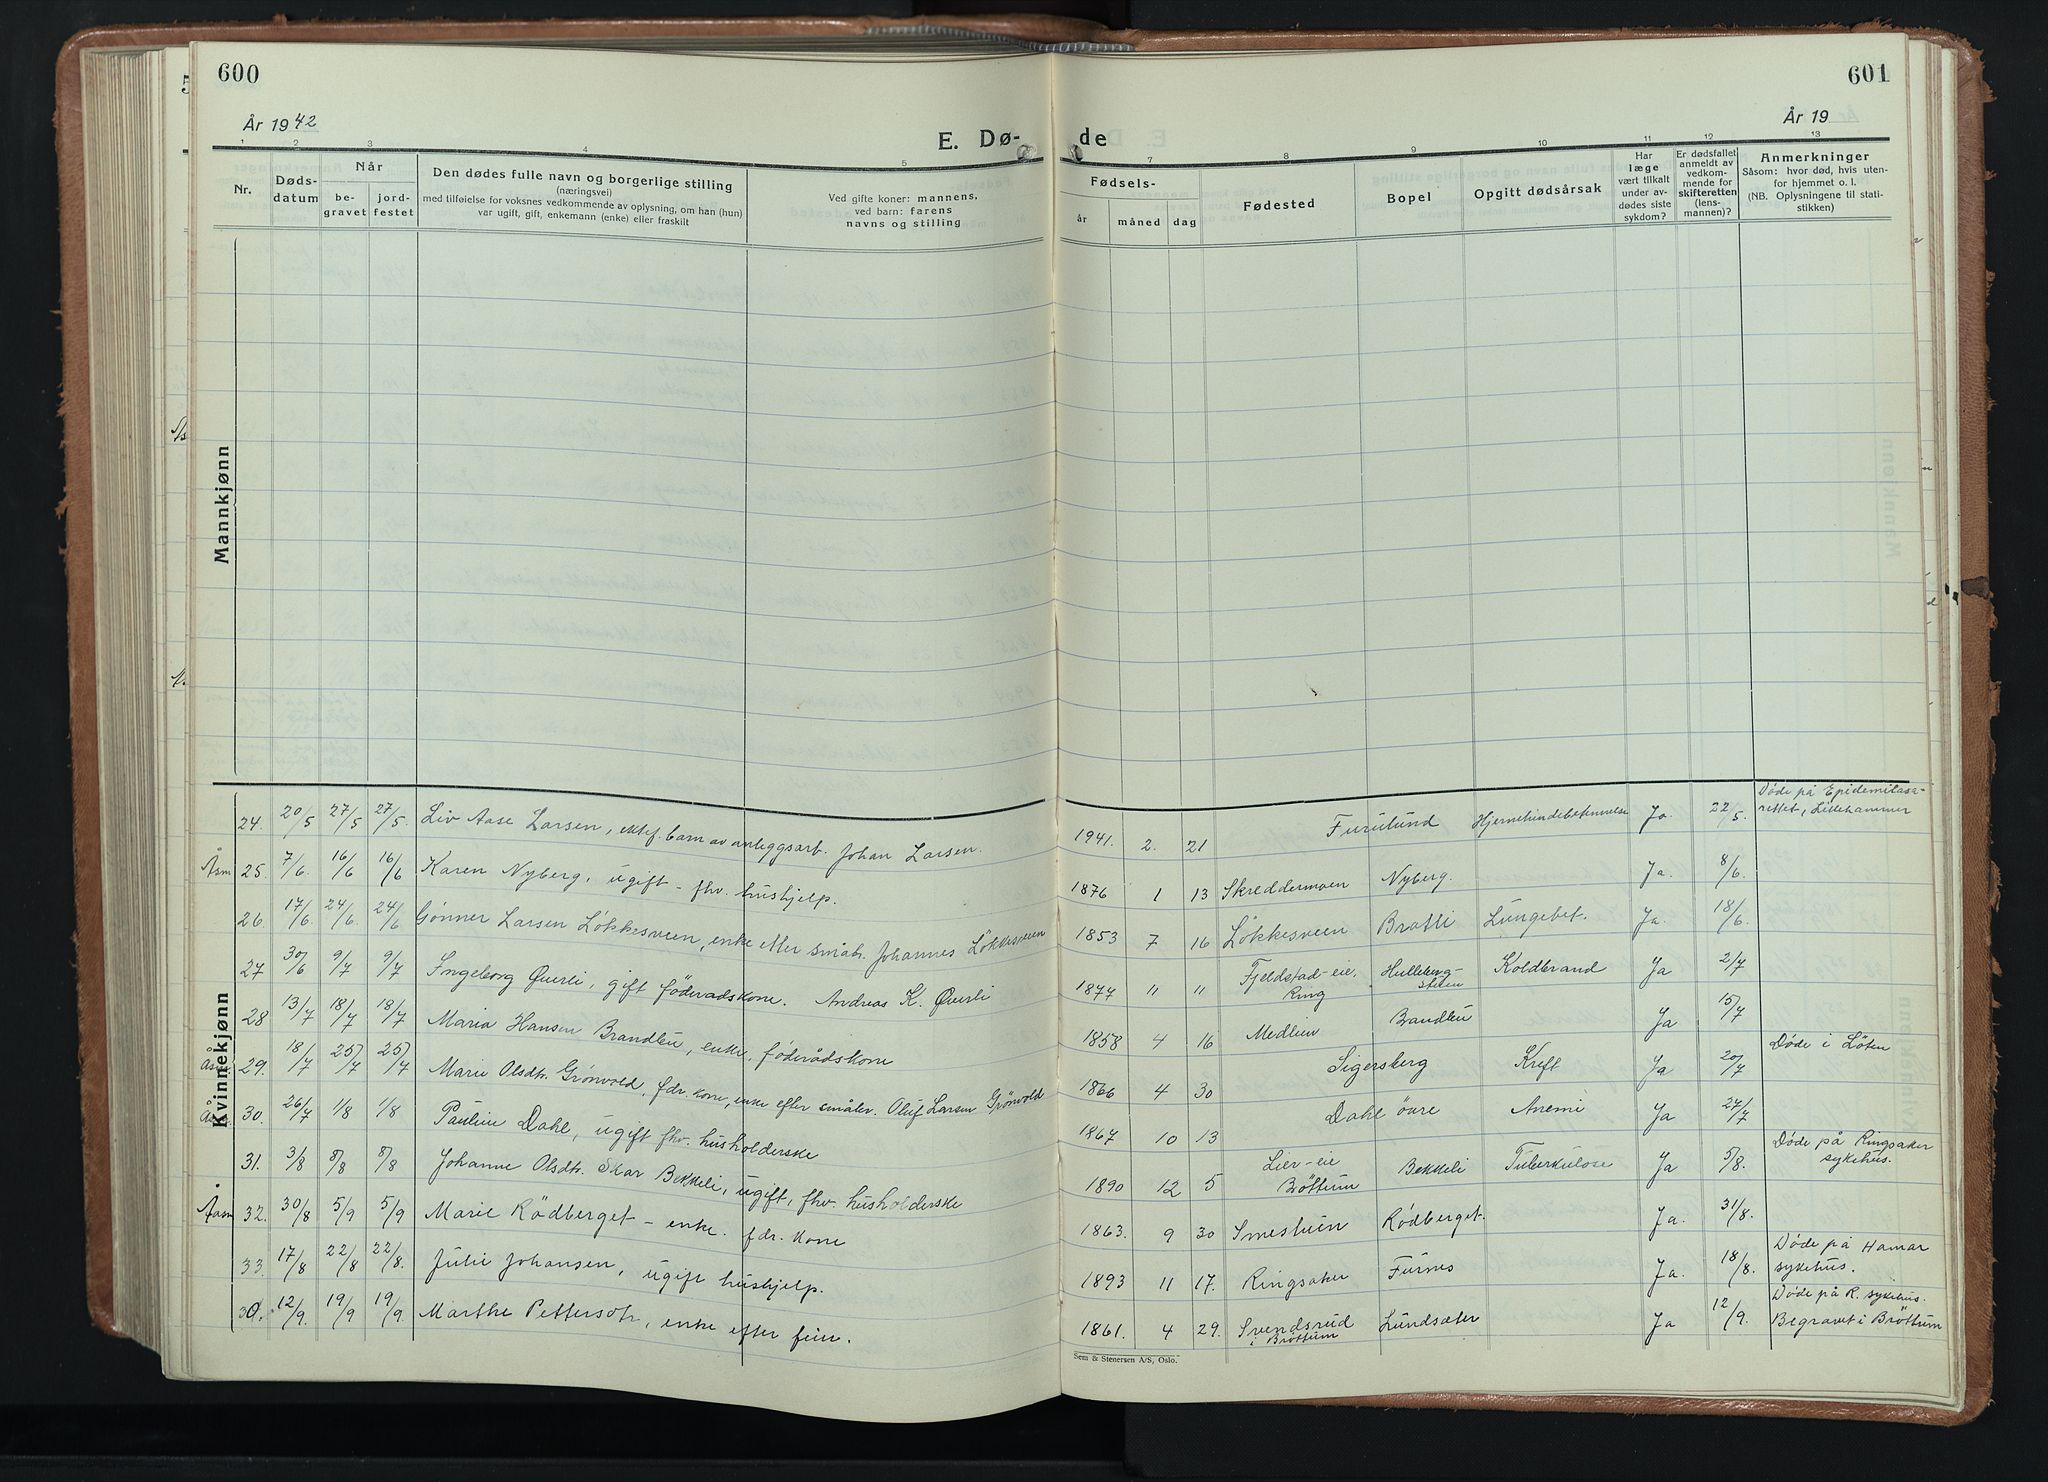 600
År 1942
E. Dø-
1 2 3 4 5
Nr.
Døds-
datum
Når
be-
gravet
jord-
festet
Den dødes fulle navn og borgerlige stilling
(næringsvei)
med tilføielse for voksnes vedkommende av oplysning, om han (hun)
var ugift, gift, enkemann (enke) eller fraskilt
Ved gifte koner: mannens,
ved barn: farens
navns og stilling
Mannkjønn
Kvinnekjønn
24. 20/5 27/5 27/5. Liv Aase Larsen, ektef. barn av anleggsarb. Johan Larsen.
Åsm 25. 7/6. 16/6 16/6 Karen Nyberg, ugift - fhv. hushjelp.
26. 17/6. 24/6 24/6 Gønner Larsen Løkkesveen, enke etter småbr. Johannes Løkkesveen
27 30/6 9/7 9/7 Ingeborg Øverli, gift föderådskone. Andreas K. Øverli
28 13/7 18/7 18/7 Maria Hansen Brandleu, enke, föderådskone
Åsm 29. 18/7 25/7 25/7 Marie Olsdtr. Grönvold, fdr. kone, enke efter småbr. Oluf Larsen Grönvold
Åsm 30. 26/7 1/8 1/8 Pauline Dahl, ugift fhv. husholderske
31. 3/8 8/8 8/8 Johanne Olsdtr. Skar Bekkeli, ugift, fhv. husholderske
Åsm 32. 30/8 5/9 5/9 Marie Rødberget - enke. fdr. kone
33. 17/8 22/8 22/8. Julie Johansen, ugift hushjelp.
30. 12/9. 19/9 19/9. Marthe Pettersdtr, enke efter feier.
601
År 19
de
7 8 9 10 11 12 13
Fødsels-
år måned dag
Fødested
Bopel
Opgitt dødsårsak
Har
læge
vært tilkalt
under av-
dødes siste
sykdom?
Er dødsfallet
anmeldt av
vedkom-
mende for
skifteretten
(lens-
mannen)?
Anmerkninger
Såsom: hvor død, hvis uten-
for hjemmet o. l.
(NB. Oplysningene til stati-
stikken)
1941. 2. 21 Furulund Hjernehindebetennelse Ja. 22/5. Døde på Epidemilasa-
rettet, Lillehammer
1876 1 13 Skreddermoen Nyberg. Ja. 8/6
1853 7 16 Løkkesveen Bratli Lungebet. Ja. 18/6.
1877 11 11 Fjeldstad-eie, Ring Hulleberg- Koldbrand Ja 2/7
1858 4 16 Medlien Brandleu Ja 15/7
1866 4 30 Sigersberg Kreft Ja 20/7 Døde i Löten
1867 10 13 Dahl övre Anemi Ja 27/7
1890 12 5 Lier-eie Bröttum Bekkeli Tuberkulose Ja 5/8. Døde på Ringsaker
sykehus.
1863. 9 30 Smestuen Rødberget. Ja. 31/8.
1893 11 17. Ringsaker Furnes Ja. 18/8. Døde på Hamar
sykehus.
1861. 4 29. Svendsrud i Bröttum Lundsæter Ja 12/9. Døde på R. sykehus.
Begravet i Bröttum
Sem & Stenersen A/S, Oslo.